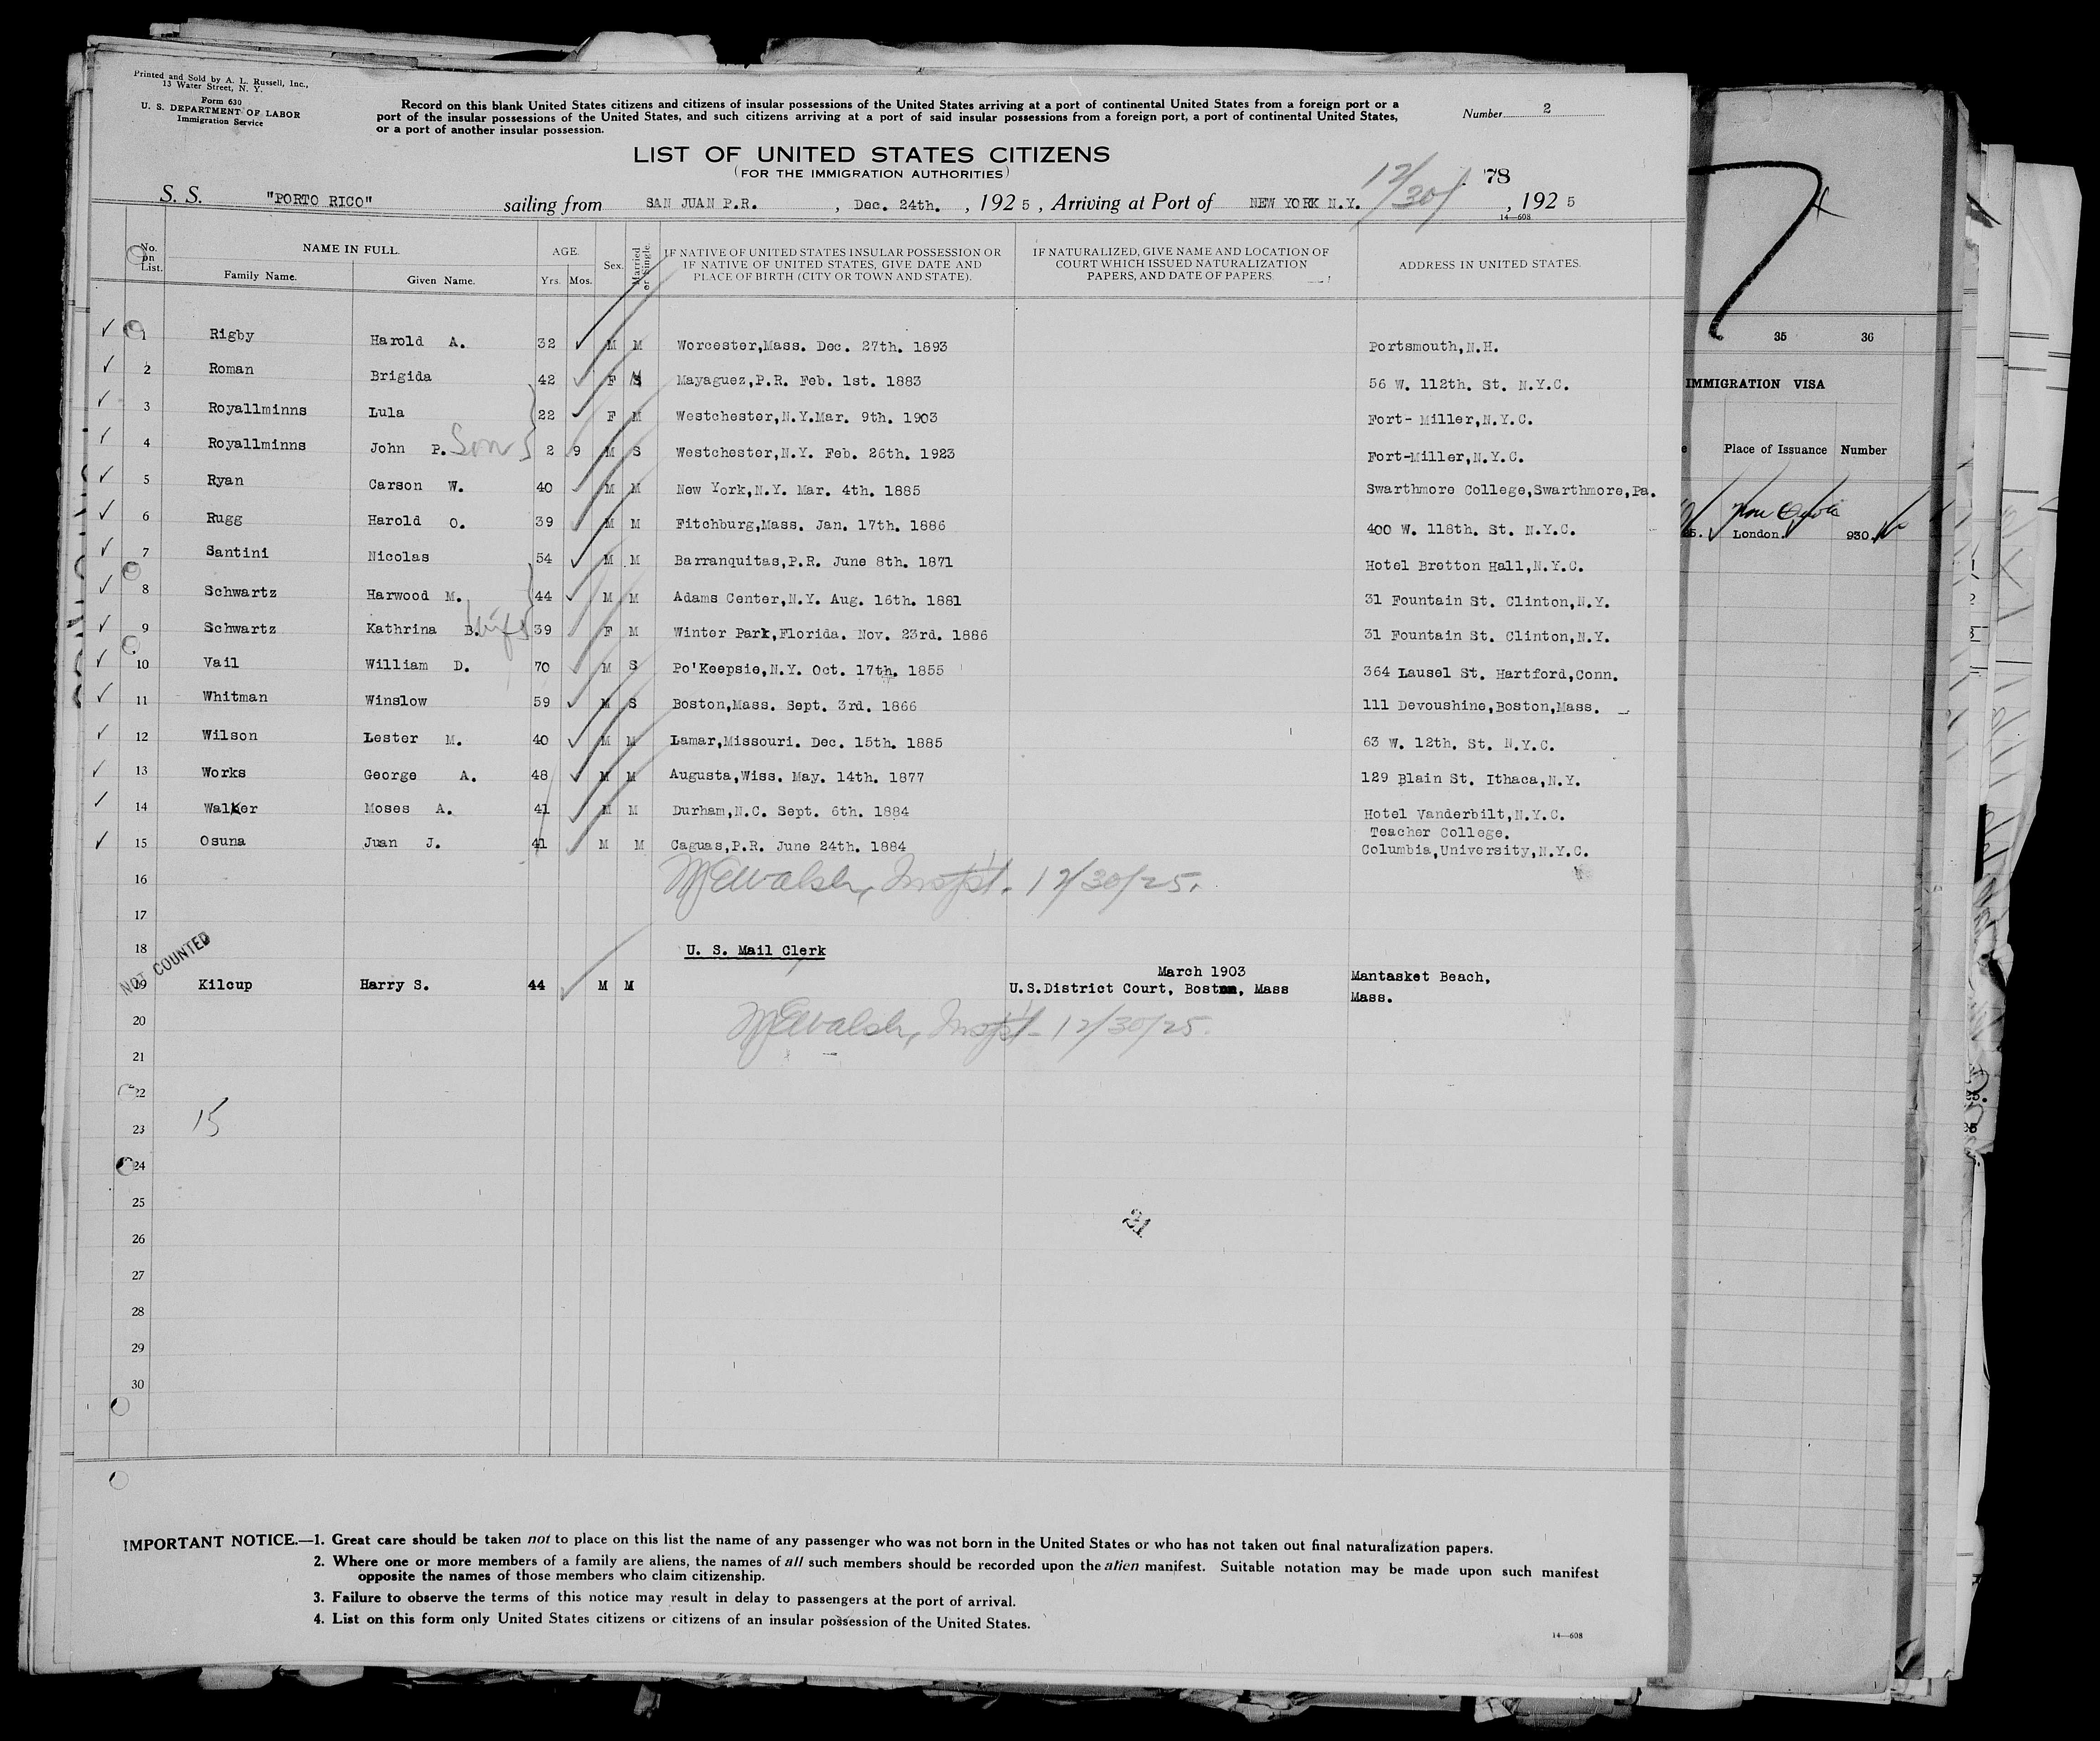 Printed and Sold by A. L. Russell, Inc.,
13 Water Street, N. Y.
Form 630
U. S. DEPARTMENT OF LABOR
Immigration Service
Record on this blank United States citizens and citizens of insular possessions of the United States arriving at a port of continental United States from a foreign port or a
port of the insular possessions of the United States, and such citizens arriving at a port of said insular possessions from a foreign port, a port of continental United States,
or a port of another insular possession.
Number 2
LIST OF UNITED STATES CITIZENS
(FOR THE IMMIGRATION AUTHORITIES)
78
S. S. "PORTO RICO" sailing from SAN JUAN P.R. , Dec. 24th. , 1925 , Arriving at Port of NEW YORK N.Y. 12/30/ , 1925
14—608
No. on List.
NAME IN FULL.
Family Name.
Given Name.
AGE.
Yrs.
Mos.
Sex.
Married or Single.
IF NATIVE OF UNITED STATES INSULAR POSSESSION OR
IF NATIVE OF UNITED STATES, GIVE DATE AND
PLACE OF BIRTH (CITY OR TOWN AND STATE).
IF NATURALIZED, GIVE NAME AND LOCATION OF
COURT WHICH ISSUED NATURALIZATION
PAPERS, AND DATE OF PAPERS.
ADDRESS IN UNITED STATES.
1 Rigby Harold A. 32 M M Worcester,Mass. Dec. 27th. 1893 Portsmouth,N.H.
2 Roman Brigida 42 F S Mayaguez,P.R. Feb. 1st. 1883 56 W. 112th. St. N.Y.C.
3 Royallminns Lula 22 F M Westchester,N.Y.Mar. 9th. 1903 Fort- Miller,N.Y.C.
4 Royallminns John P. Son 2 9 M S Westchester,N.Y. Feb. 26th. 1923 Fort-Miller,N.Y.C.
5 Ryan Carson W. 40 M M New York,N.Y. Mar. 4th. 1885 Swarthmore College,Swarthmore,Pa.
6 Rugg Harold O. 39 M M Fitchburg,Mass. Jan. 17th. 1886 400 W. 118th. St. N.Y.C.
7 Santini Nicolas 54 M M Barranquitas,P.R. June 8th. 1871 Hotel Bretton Hall,N.Y.C.
8 Schwartz Harwood M. 44 M M Adams Center,N.Y. Aug. 16th. 1881 31 Fountain St. Clinton,N.Y.
9 Schwartz Kathrina B. wife 39 F M Winter Park,Florida. Nov. 23rd. 1886 31 Fountain St. Clinton,N.Y.
10 Vail William D. 70 M S Po'Keepsie,N.Y. Oct. 17th. 1855 364 Lausel St. Hartford,Conn.
11 Whitman Winslow 59 M S Boston,Mass. Sept. 3rd. 1866 111 Devoushine,Boston,Mass.
12 Wilson Lester M. 40 M M Lamar,Missouri. Dec. 15th. 1885 63 W. 12th. St. N.Y.C.
13 Works George A. 48 M M Augusta,Wiss. May. 14th. 1877 129 Blain St. Ithaca,N.Y.
14 Walker Moses A. 41 M M Durham,N.C. Sept. 6th. 1884 Hotel Vanderbilt,N.Y.C.
Teacher College.
15 Osuna Juan J. 41 M M Caguas,P.R. June 24th. 1884 Columbia,University,N.Y.C.
16 Walsh, Inspt. 12/30/25.
17
18 U. S. Mail Clerk
NOT COUNTED
March 1903
19 Kilcup Harry S. 44 M M U.S.District Court, Boston, Mass Mantasket Beach,
Mass.
20 Walsh, Inspt. 12/30/25.
21
22
15
23
24
25
21
26
27
28
29
30
IMPORTANT NOTICE.—1. Great care should be taken not to place on this list the name of any passenger who was not born in the United States or who has not taken out final naturalization papers.
2. Where one or more members of a family are aliens, the names of all such members should be recorded upon the alien manifest. Suitable notation may be made upon such manifest
opposite the names of those members who claim citizenship.
3. Failure to observe the terms of this notice may result in delay to passengers at the port of arrival.
4. List on this form only United States citizens or citizens of an insular possession of the United States.
14—608
35 36
IMMIGRATION VISA
Place of Issuance Number
London. 930.